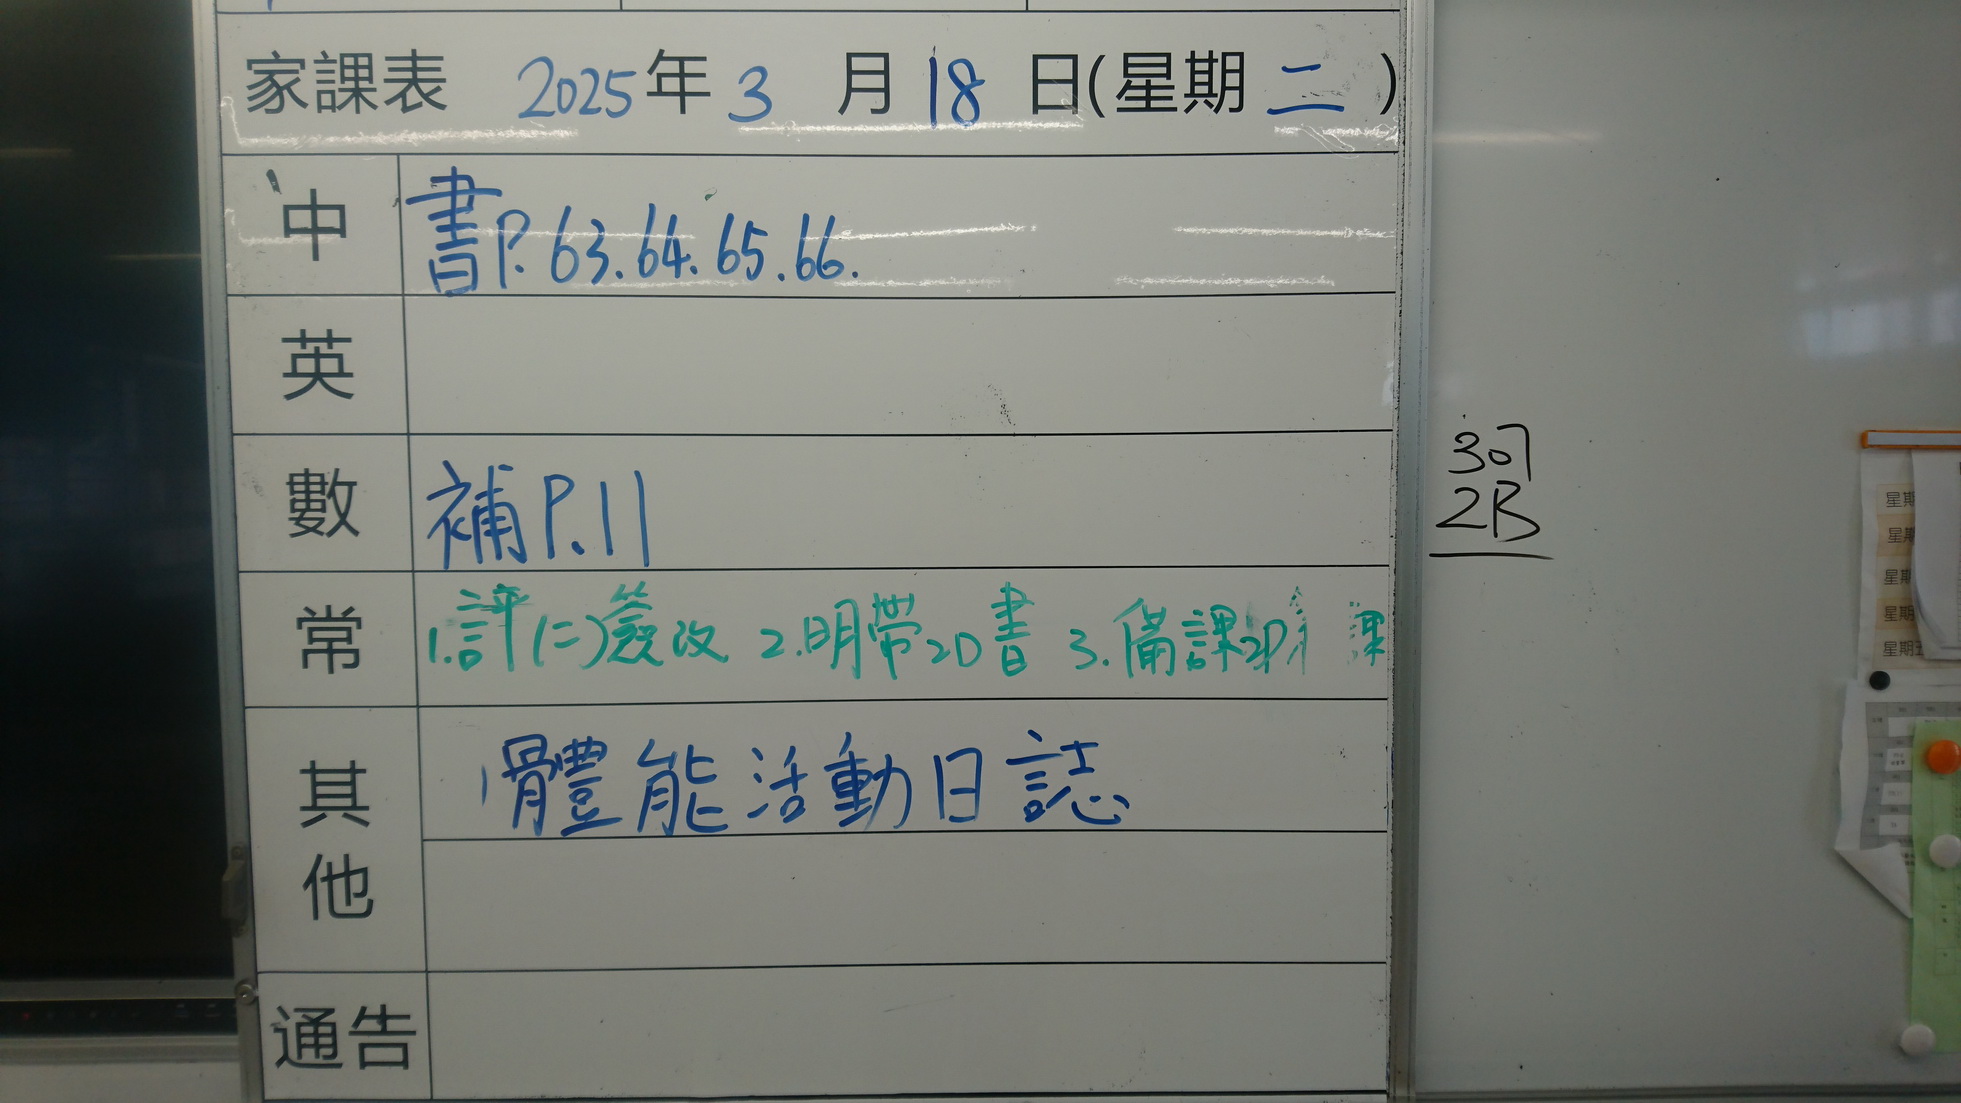 家課表 2025年3月18日(星期二)
中 書P.63.64.65.66.
英
數 補P.11
常 1.評(二)簽改 2.明帶2D書 3.備課2D 課
其他 1體能活動日誌
通告
307
2B
星期
星期
星期
星期
星期五